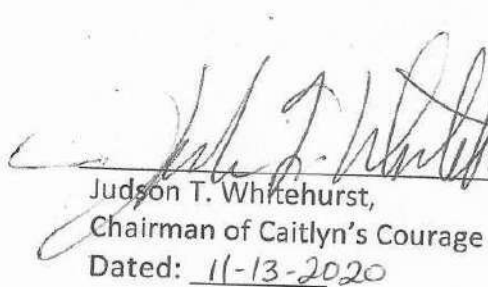 Judson T. Whitehurst,
Chairman of Caitlyn's Courage
Dated: 11-13-2020